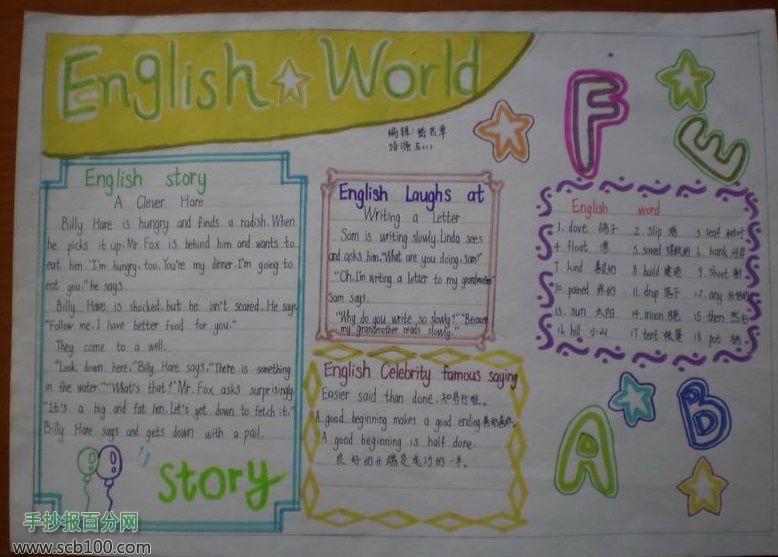 English World
编辑:
培源五
English story
A Clever Hare
Billy Hare is hungry and finds a radish. When
he picks it up, Mr. Fox is behind him and wants to
eat him. "I'm hungry, too. You're my dinner. I'm going to
eat you." he says.
Billy Hare is shocked, but he isn't scared. He says
"Follow me. I have better food for you."
They come to a well.
"Look down here," Billy Hare says, "There is something
in the water." "What's that?" Mr. Fox asks surprisingly.
"It's a big and fat hen. Let's get down to fetch it,"
Billy Hare says and gets down with a pail.
story
English Laughs at
Writing a Letter
Sam is writing slowly. Linda sees
and asks him, "What are you doing, Sam?"
"Oh, I'm writing a letter to my grandmother"
Sam says.
"Why do you write so slowly?" "Because
my grandmother reads slowly."
English Celebrity famous saying
Easier said than done. 知易行难。
A good beginning makes a good ending. 善始善终。
A good beginning is half done.
良好的开端是成功的一半。
F
E
English word
1. dove 鸽子 2. slip 3. leaf 树叶
4. float 漂 5. saved 6. bank 河岸
7. kind 善良的 8. build 建造 9. shoot 射
10. pained 疼的 11. drop 落下 12. any
13. sun 太阳 14. moon 月亮 15. then 然后
16. hill 小山 17. tent 帐篷 18. pot 锅
A
B
手抄报百分网
www.scb100.com